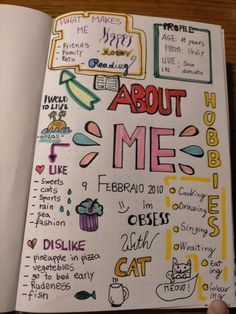 WHAT MAKES
ME Happy
- Friends
- Family
- Pets
Reading
PROFILE
AGE: 11 years
FROM: Italy
LIVE: San
IN donato
I WOULD
TO LIVE
ABOUT
ME
HOBBIES
LIKE
- sweets
- cats
- sports
- rain
- sea
- fashion
9 FEBBRAIO 2010
Im
OBSESS
With
CAT
MEOW!
Cooking
Drawing
Singing
Wraiting
Eat-
ing
Colour
ing
DISLIKE
- pineapple in pizza
- vegetables
- go to bed early
- Rudeness
- fish